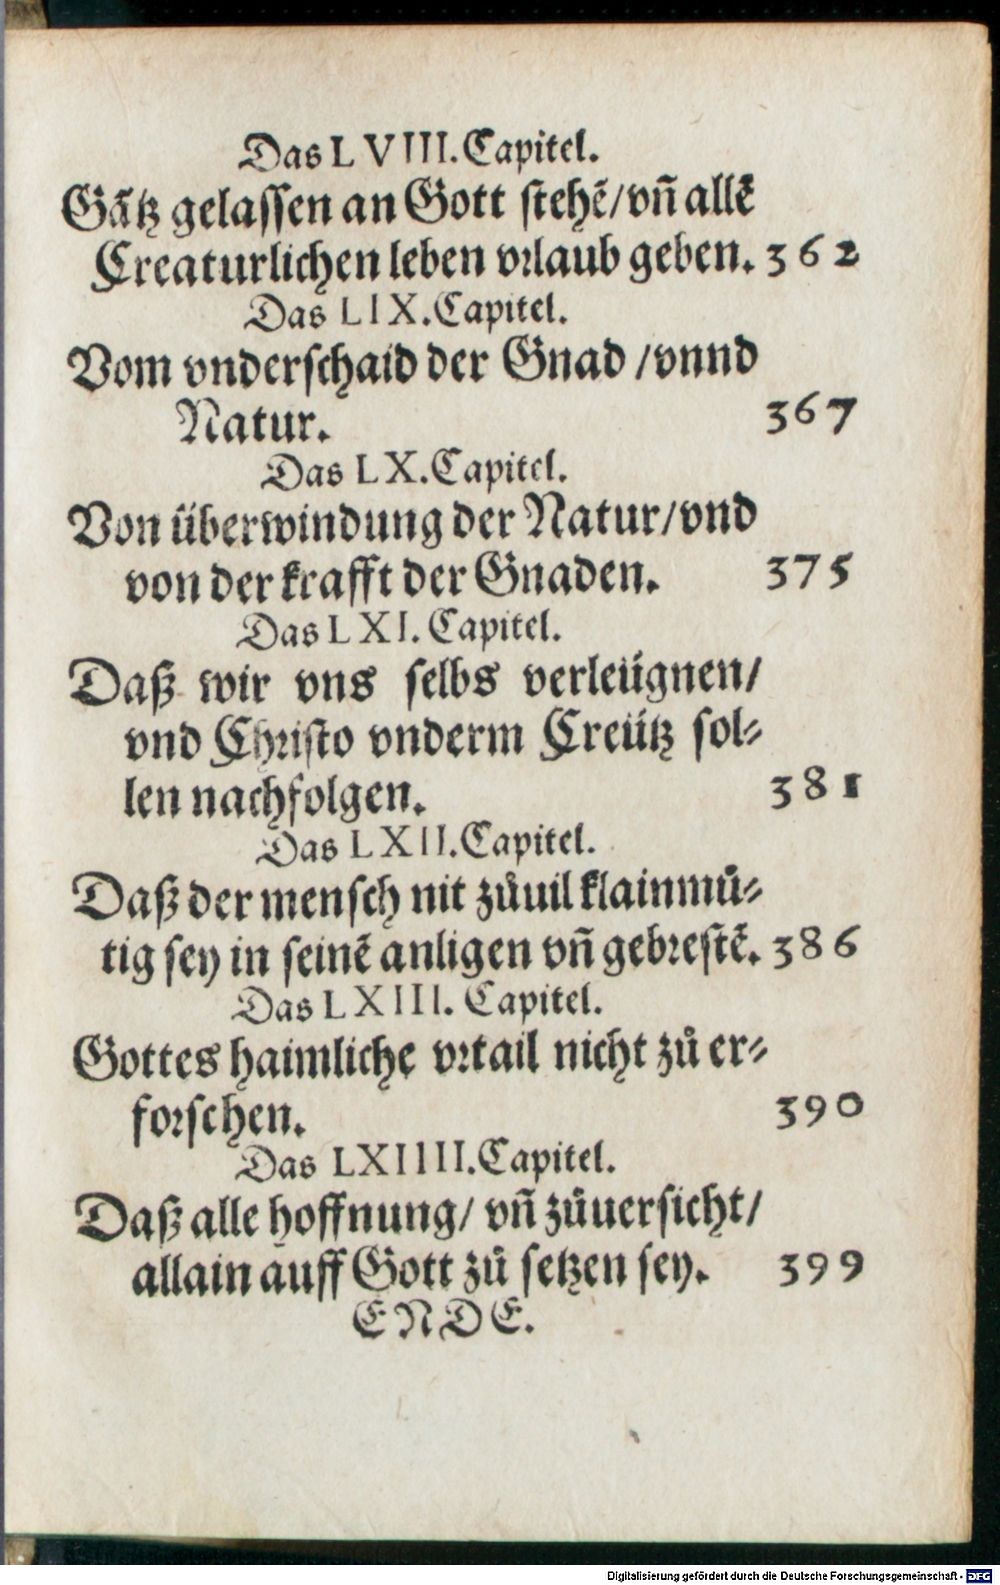 Das LVIII. Capitel.
Gātz gelassen an Gott stehē/vñ allē
Creaturlichen leben vrlaub geben. 362
Das LIX. Capitel.
Vom vnderschaid der Gnad /vnnd
Natur. 367
Das LX. Capitel.
Von überwindung der Natur/vnd
von der krafft der Gnaden. 375
Das LXI. Capitel.
Daß wir vns selbs verleügnen/
vnd Christo vnderm Creütz sol⸗
len nachfolgen. 381
Das LXII. Capitel.
Daß der mensch nit zůuil klainmů⸗
tig sey in seinē anligen vñ gebrestē. 386
Das LXIII. Capitel.
Gottes haimliche vrtail nicht zů er⸗
forschen. 390
Das LXIIII. Capitel.
Daß alle hoffnung/ vñ zůuersicht/
allain auff Gott zů setzen sey. 399
ENDE.
Digitalisierung gefördert durch die Deutsche Forschungsgemeinschaft - DFG